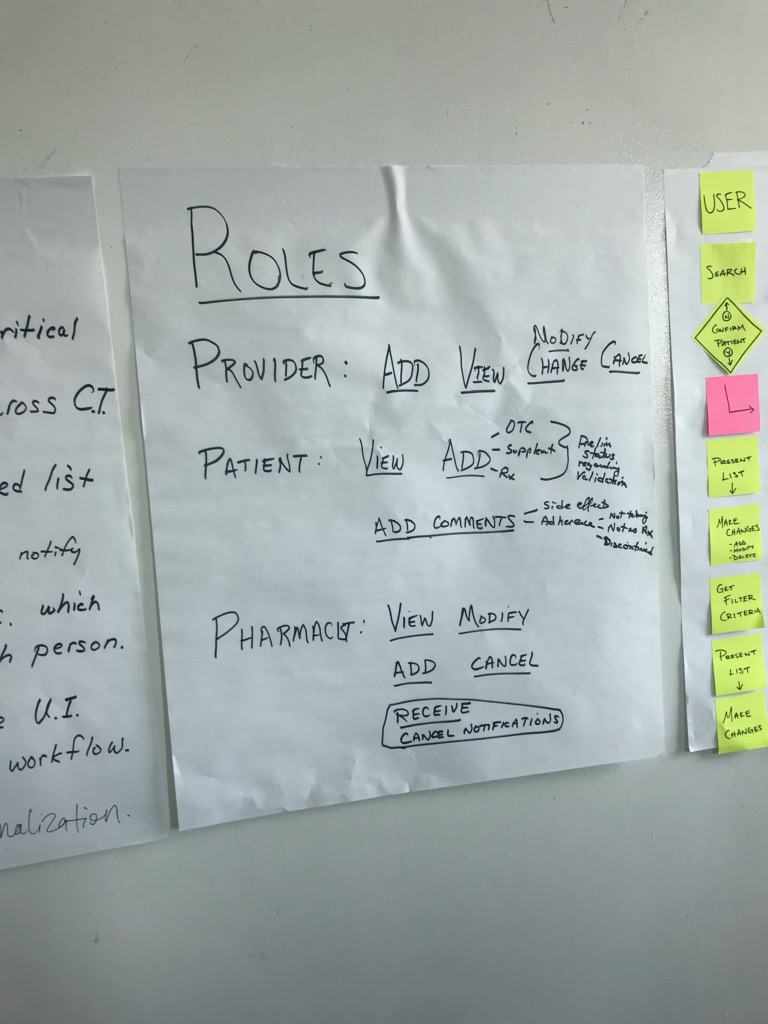 ritical
ross C.T.
ed list
notify
which
h person.
U.I.
workflow.
nalization.
ROLES
MODIFY
PROVIDER: ADD VIEW CHANGE CANCEL
PATIENT: VIEW ADD
- OTC
- Supplemt
- Rx
Prelim
status
regarding
Validation
ADD COMMENTS
- Side effects
- Adherence
- Not taking
- Not as Rx
- Discontinued
PHARMACIST: VIEW MODIFY
ADD CANCEL
RECEIVE
CANCEL NOTIFICATIONS
USER
SEARCH
N
CONFIRM
PATIENT
Y
PRESENT
LIST
MAKE
CHANGES
- ADD
- MODIFY
- DELETE
GET
FILTER
CRITERIA
PRESENT
LIST
MAKE
CHANGES